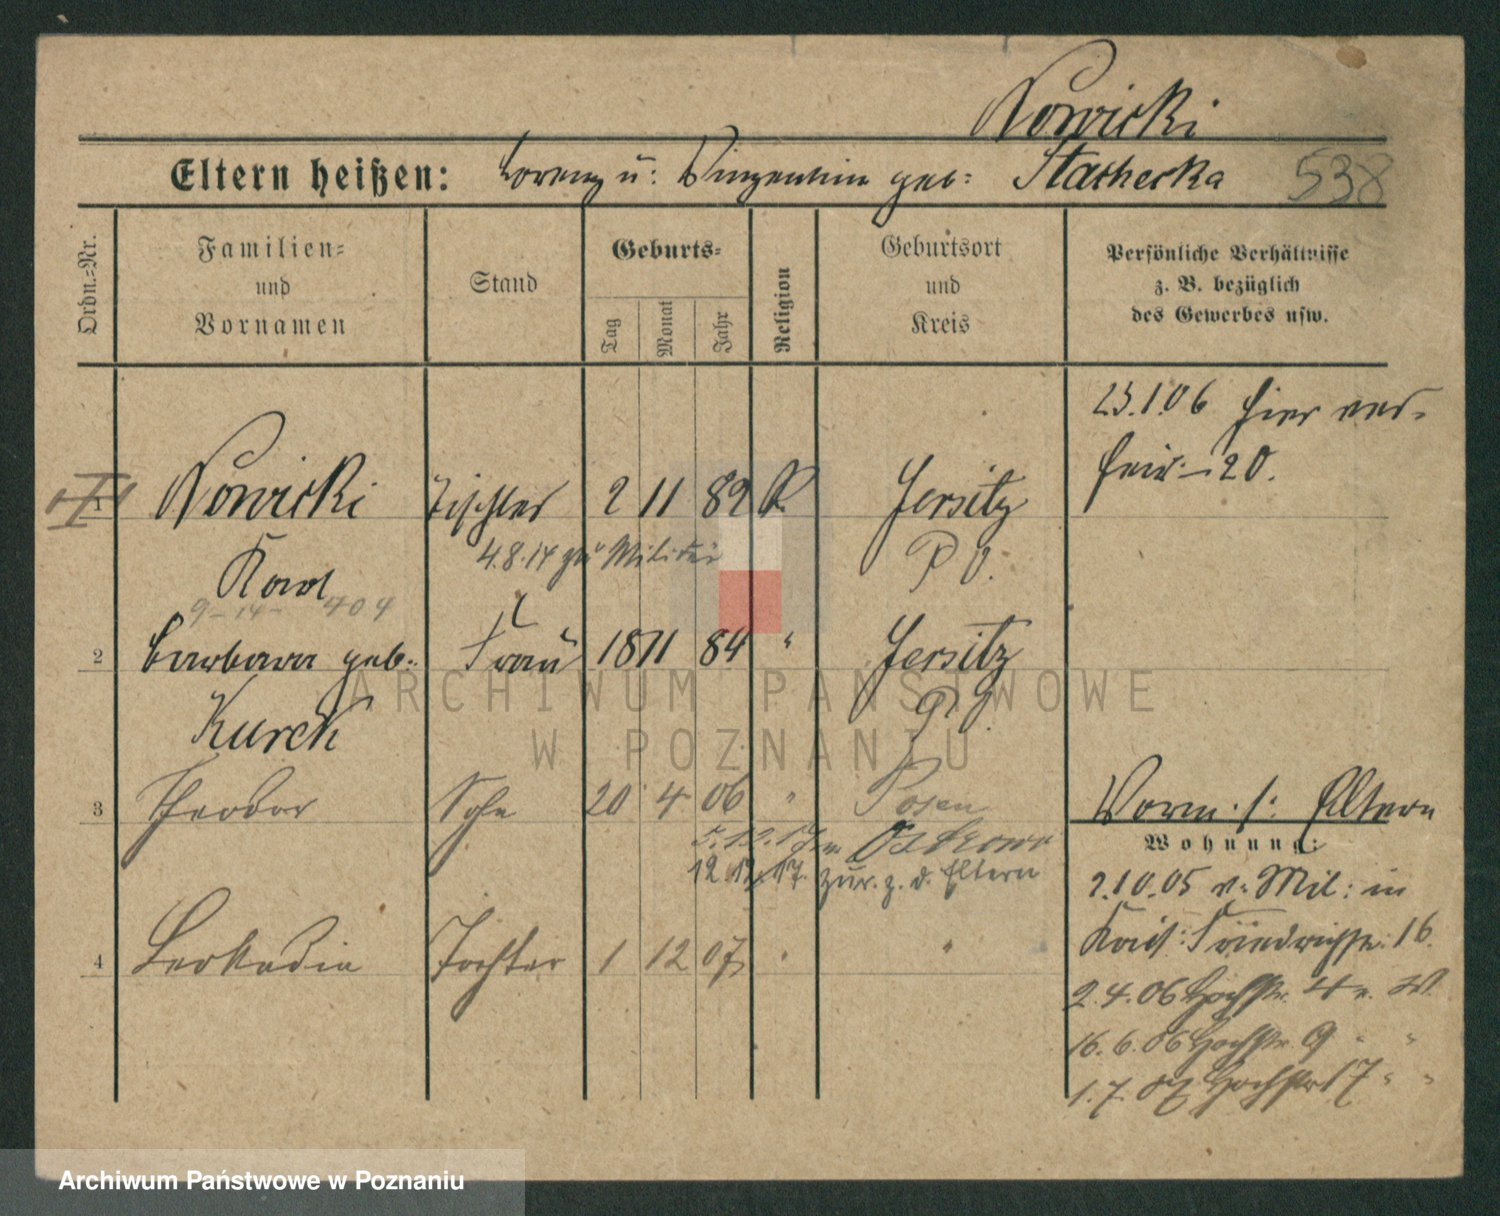 Nowicki
Eltern heißen: Lorenz u. Vinzentine geb: Stachecka 538
Ordn.=Nr.
Familien=
und
Vornamen
Stand
Geburts=
Tag
Monat
Jahr
Religion
Geburtsort
und
Kreis
Persönliche Verhältnisse
z. B. bezüglich
des Gewerbes usw.
23.1.06 hier ver-
heir. 20.
1 Nowicki Tischler 2 11 82 K. Jersitz
4.8.14 zu Militär P. O.
Karl
9-14- 404
2 Barbara geb: Frau 18 11 84 " Jersitz
Kurek P. O.
3 Theodor Sohn 20 4 06 " Posen
5.12.17 n Ostrowo
12.12.17. zur. z. d. Eltern
4 Leokadia Tochter 1 12 07 " "
Vorm. s: Eltern
Wohnung:
2.10.05 v. Mil: in
Kais: Friedrichstr: 16.
2.4.06 Hochstr. 4 n. W.
16.6.06 Hochstr. 9 " "
1.7.07 Hochstr 17 " "
ARCHIWUM PAŃSTWOWE
W POZNANIU
Archiwum Państwowe w Poznaniu